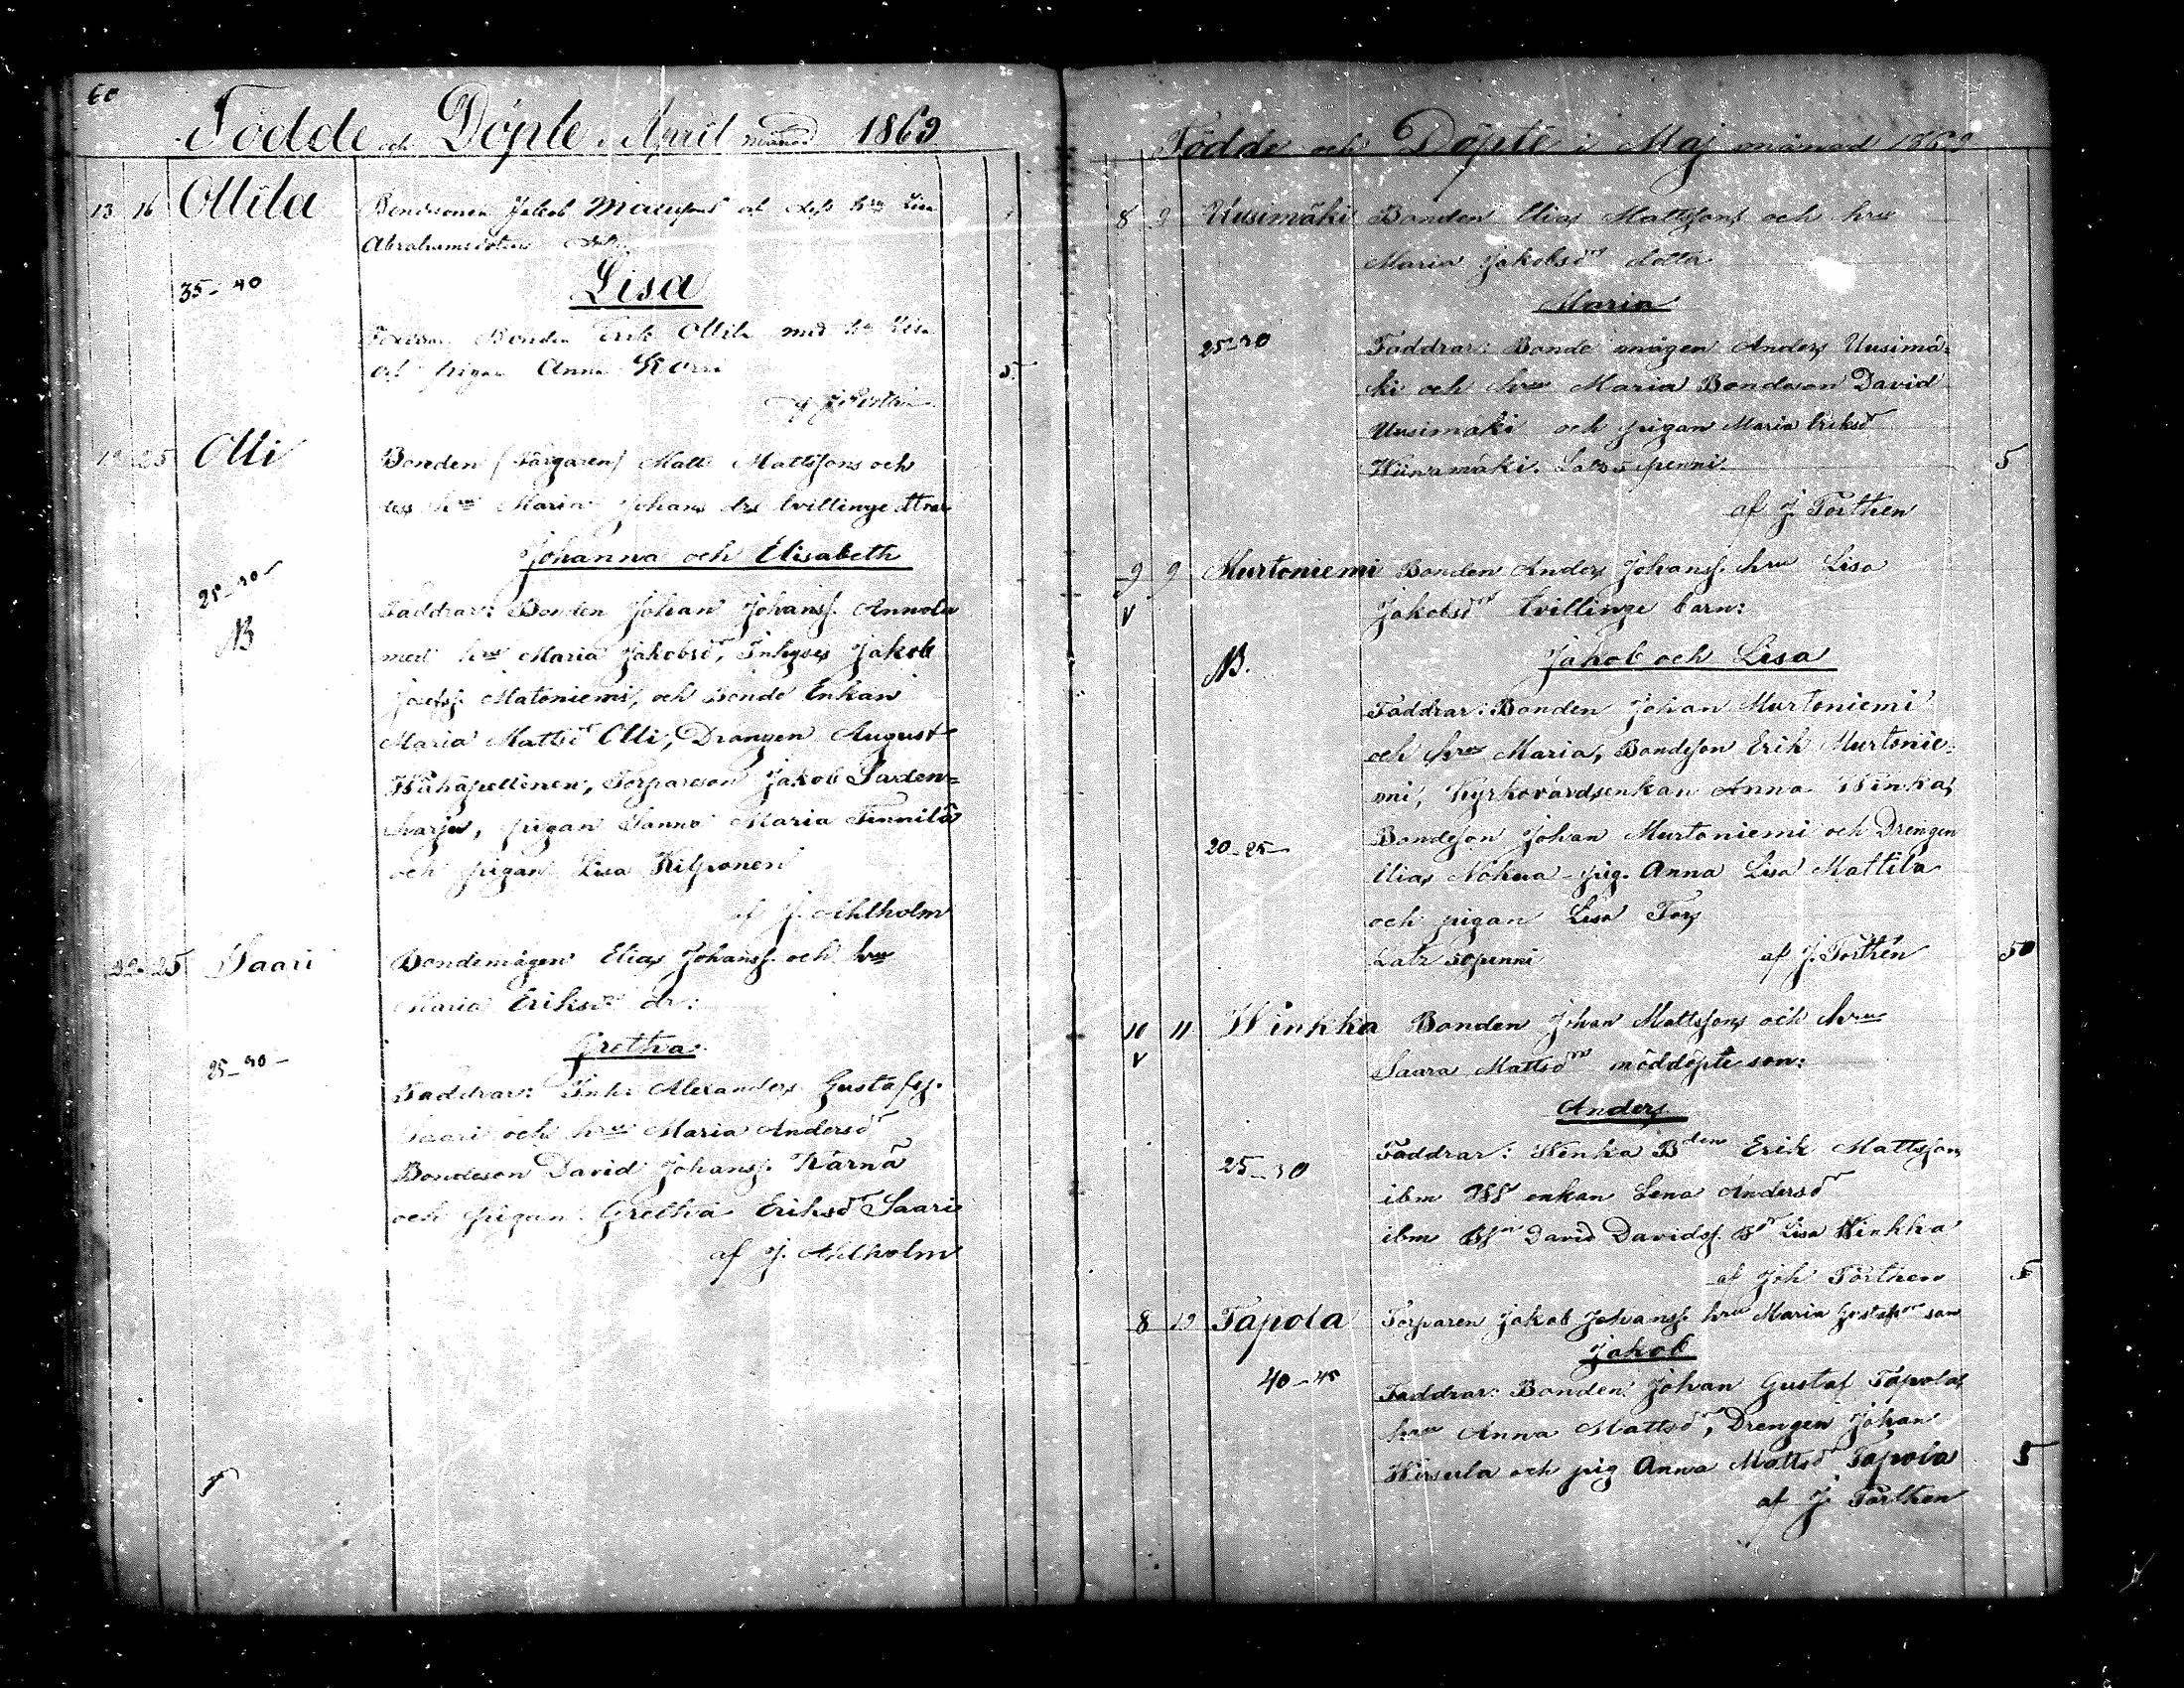 60
Födde och Döpte i April månad 1869
13 16 Ollila Bondsonen Jakob och dess hru Lisa
Abrahamsdotters
35-40
Lisa
Bonden Erik Ollila med hru Lisa
och pigan Anna
5
19 25 Olli Bonden (Färgaren) Matts Mattssons och
dess hru Maria Johans drs tvillinge
Johanna och Elisabeth
25-30
Faddrar: Bonden Johan Johanss. Annola
NB
med hru Maria Jakobsdr, Inhyses Jakob
Josefss. Matoniemi, och Bonde Enkan
Maria Mattsdr Olli, Drängen August
Wähäpelttonen, Torpareson Jakob Saden=
harju, pigan Sanna Maria Finnilä
och pigan Lisa Kilponen
af J. Ahlholm
22 25 Saari Bondemågen Elias Johanss. och hru
Maria Eriksdrs dr:
Gretha
25-30
Faddrar: Inh: Alexander Gustafss.
Saari och hru Maria Andersdr
Bondeson David Johanss. Kärnä
och pigan Gretha Eriksdr Saari
af J. Ahlholm
Födde och Döpte i Maj månad 1869
8 9 Uusimäki Bonden Elias Mattssons och hru
Maria Jakobsdrs dotter
Maria
25-30
Faddrar: Bonde mågen Anders Uusimä-
ki och hru Maria Bondeson David
Uusimäki och pigan Maria Eriksdr
Wiinamäki. Latz 5 penni. 5
af J. Torthen
9 9 Murtoniemi Bonden Anders Johanss. hru Lisa
V
Jakobsdrs tvillinge barn:
NB.
Jakob och Lisa
Faddrar: Bonden Johan Murtoniemi
och hru Maria, Bondeson Erik Murtonie=
mi, Kyrkovärdsenkan Anna Winka,
20-25
Bondeson Johan Murtoniemi och Drengen
Elias Nokua pig. Anna Lisa Mattila
och pigan Lisa Tors
Latz 50 penni af J. Torthen 50
10 11 Winkka Bonden Johan Mattssons och hru
V
Saara Mattsdrs nöddöpte son:
Anders
Faddrar: Winka Bden Erik Mattsson
25-30
ibm enkan Lena Andersdr
ibm Bsn David Davidss. Bdr Lisa Winkka
af Joh Torthen 5
8 19 Tapola Torparen Jakob Johanss. hru Maria Gustafsdrs son
Jakob
40-45
Faddrar: Bonden Johan Gustaf Tapola,
hru Anna Mattsdr, Drengen Johan
Wirsula och pig Anna Mattsdr Tapola 5
af J. Torthen